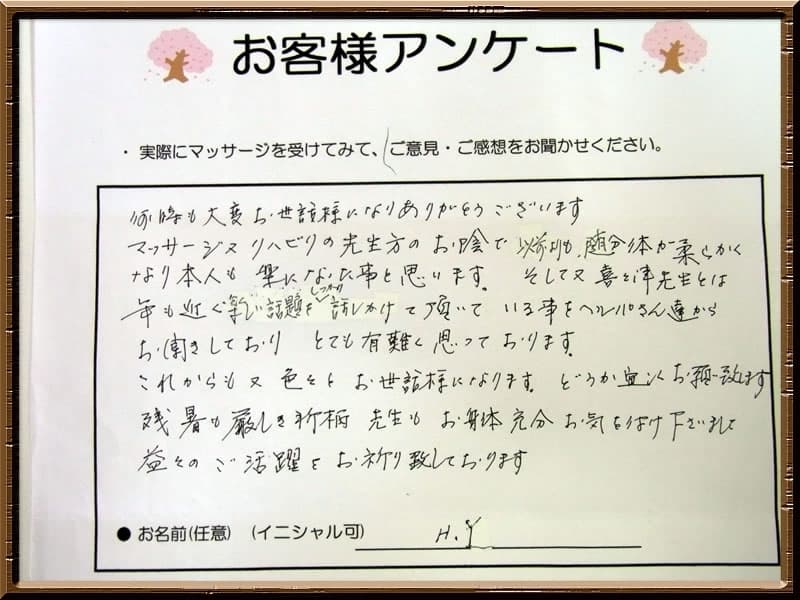 お客様アンケート
・実際にマッサージを受けてみて、ご意見・ご感想をお聞かせください。
何時も大変お世話様になりありがとうございます
マッサージ又リハビリの先生方のお陰で以前よりも、随分体が柔らかく
なり本人も楽になった事と思います。そして又喜と津先生とは
年も近く楽しい話題をしっかり話しかけて頂いている事をヘルパさん達から
お聞きしており とても有難く思っております。
これからも又色々とお世話様になります。どうか宜しくお願い致します
残暑も厳しき折柄 先生もお身体充分お気を付け下さいまして
益々のご活躍をお祈り致しております
●お名前(任意) (イニシャル可) H.Y